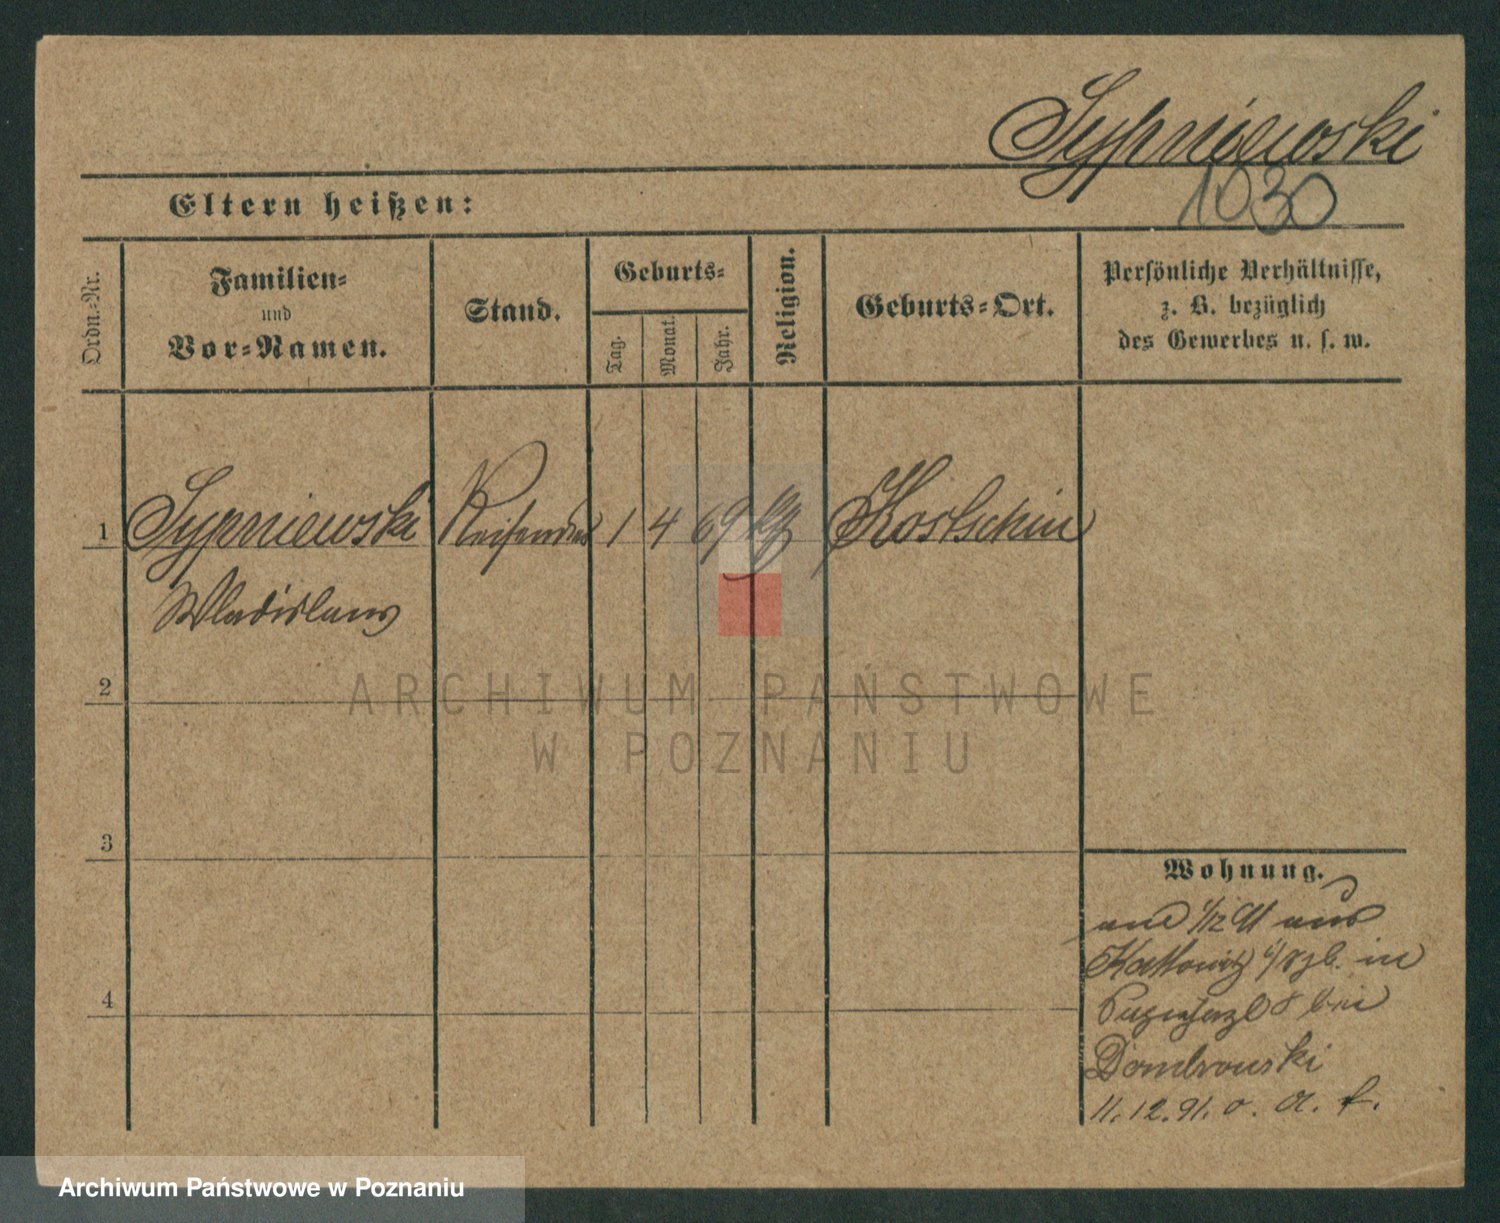 Sypniewski
1030
Eltern heißen:
Ordn.-Nr.
Familien-
und
Vor-Namen.
Stand.
Geburts-
Tag.
Monat.
Jahr.
Religion.
Geburts-Ort.
Persönliche Verhältnisse,
z. B. bezüglich
des Gewerbes u. s. w.
1 Sypniewski Reisender 1 4 69 Kostschin
Wladislaus
2
ARCHIWUM PAŃSTWOWE
W POZNANIU
3
4
Wohnung.
1/12 91 aus
Kattowitz in
8 bei
Dombrowski
11.12.91. v. A. f.
Archiwum Państwowe w Poznaniu